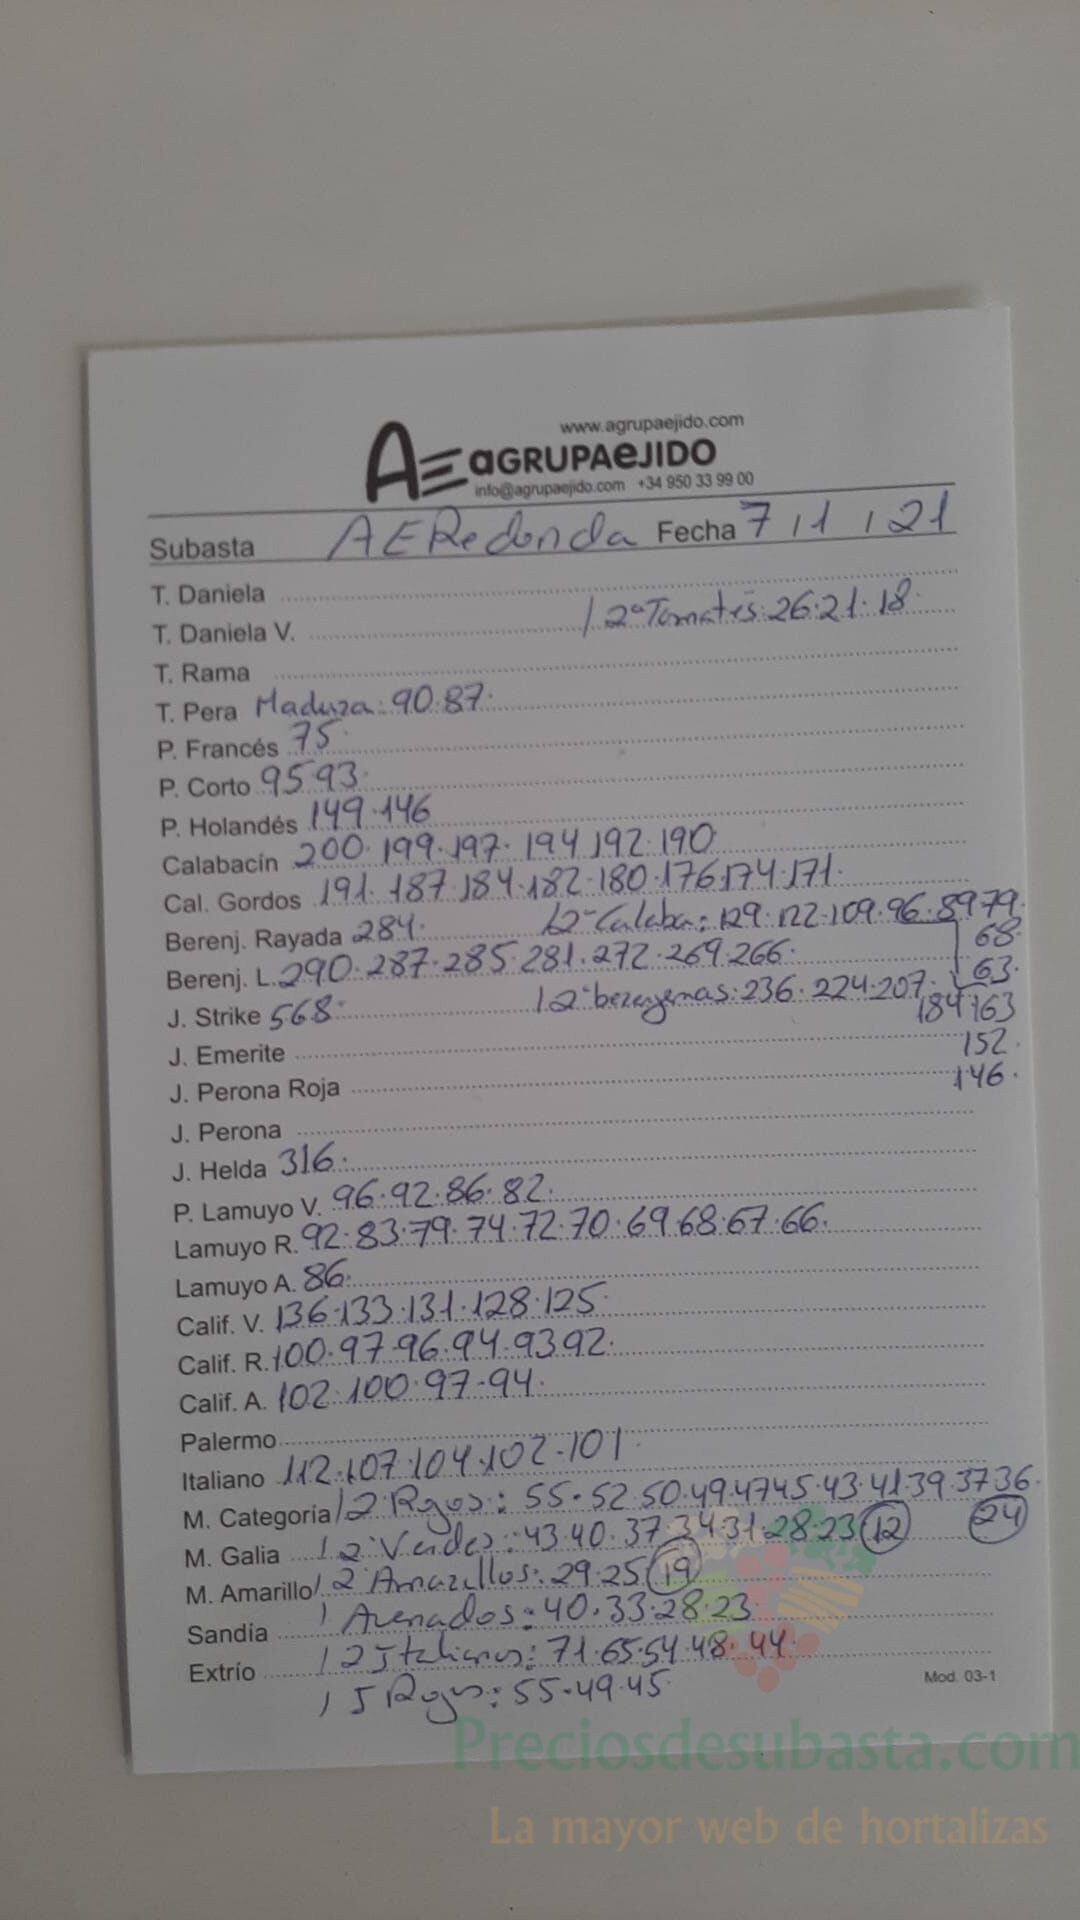 www.agrupaejido.com
AE aGRUPAeJIDO
info@agrupaejido.com +34 950 33 99 00
Subasta AERedonda Fecha 7/1/21
T. Daniela
T. Daniela V. / 2ª Tomates: 26·21·18·
T. Rama
T. Pera Maduza: 90·87·
P. Francés 75·
P. Corto 95·93·
P. Holandés 149·146
Calabacín 200·199·197·194·192·190
Cal. Gordos 191·187·184·182·180·176·174·171·
Berenj. Rayada 284· / 2ª Calaba: 129·122·109·96·89·79·
68·
Berenj. L. 290·287·285·281·272·269·266·
63·
J. Strike 568· / 2ª berengenas: 236·224·207·
184·163
J. Emerite
152·
J. Perona Roja
146·
J. Perona
J. Helda 316·
P. Lamuyo V. 96·92·86·82·
Lamuyo R. 92·83·79·74·72·70·69·68·67·66·
Lamuyo A. 86·
Calif. V. 136·133·131·128·125·
Calif. R. 100·97·96·94·93·92·
Calif. A. 102·100·97·94·
Palermo
Italiano 112·107·104·102·101·
M. Categoría / 2 Rojos: 55·52·50·49·47·45·43·41·39·37·36·
24
M. Galia / 2 Verdes: 43·40·37·34·31·28·23 12
M. Amarillo / 2 Amarillos: 29·25 19
Sandía / Asenados: 40·33·28·23
Extrío / 2 Italianos: 71·65·54·48·44·
/ J Rojos: 55·49·45·
Mod. 03-1
Preciosdesubasta.com
La mayor web de hortalizas